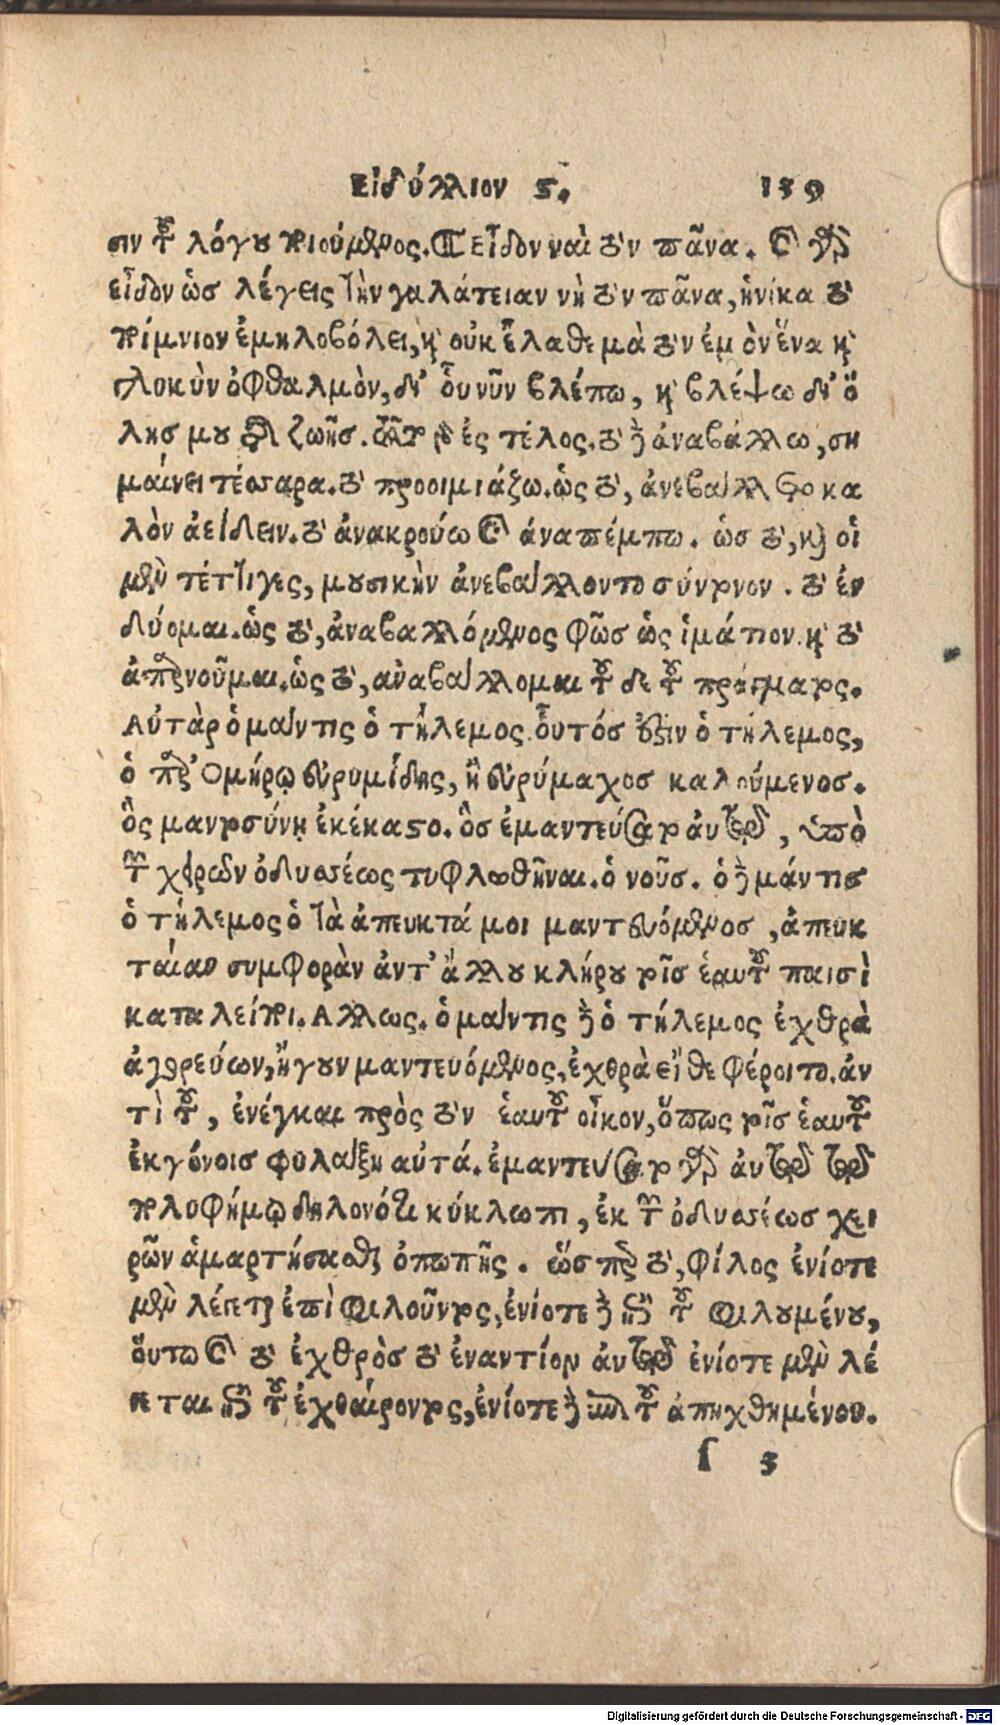 Εἰδύλλιον ϛ. 139
σιν τοῦ λόγου ποιούμενος. Εἶδον ναὶ τὸν πᾶνα. καὶ γὰρ
εἶδον ὡς λέγεις τὴν γαλάτειαν νὴ τὸν πᾶνα, ἡνίκα τὸ
ποίμνιον ἐμηλοβόλει, καὶ οὐκ ἔλαθε μὰ τὸν ἐμὸν ἕνα καὶ
γλυκὺν ὀφθαλμὸν, δι' οὗ νῦν βλέπω, καὶ βλέψω δι' ὅ
λης μου τῆς ζωῆς. ἐς τέλος. τὸ δὲ ἀναβάλλω, ση
μαίνει τέσσαρα. τὸ προοιμιάζω. ὡς τὸ, ἀνεβάλλετο κα
λὸν ἀείδειν. τὸ ἀνακρούω καὶ ἀναπέμπω. ὡς τὸ, καὶ οἱ
μὲν τέττιγες, μουσικὴν ἀνεβάλλοντο σύντονον. τὸ ἐν
δύομαι. ὡς τὸ, ἀναβαλλόμενος φῶς ὡς ἱμάτιον. καὶ τὸ
ὡς τὸ, ἀναβάλλομαι τοῦδε τοῦ πράγματος.
Αὐτὰρ ὁ μάντις ὁ τήλεμος. οὗτός ἐστιν ὁ τήλεμος,
ὁ παρ' Ὁμήρῳ εὐρυμίδης, ἢ εὐρύμαχος καλούμενος.
ὃς μαντοσύνῃ ἐκέκαστο. ὃς ἐμαντεύσατο αὐτῷ, ὑπὸ
τῶν χειρῶν ὀδυσσέως τυφλωθῆναι. ὁ νοῦς. ὁ δὲ μάντις
ὁ τήλεμος ὁ τὰ ἀπευκτά μοι μαντευόμενος, ἀπευκ
ταίαν συμφορὰν ἀντ' ἄλλου κλήρου τοῖς ἑαυτοῦ παισὶ
καταλείποι. Ἄλλως. ὁ μάντις δὲ ὁ τήλεμος ἐχθρὰ
ἀγορεύων, ἤγουν μαντευόμενος, ἐχθρὰ εἴθε φέροιτο. ἀν
τὶ τοῦ, ἐνέγκαι πρὸς τὸν ἑαυτοῦ οἶκον, ὅπως τοῖς ἑαυτοῦ
ἐκγόνοις φυλάξῃ αὐτά. ἐμαντεύσατο γὰρ αὐτῷ τῷ
πολυφήμῳ δηλονότι κύκλωπι, ἐκ τῶν ὀδυσσέως χει
ρῶν ἁμαρτήσεσθαι ὀπωπῆς. ὥσπερ τὸ, φίλος ἐνίοτε
μὲν λέγεται ἐπὶ φιλοῦντος, ἐνίοτε δὲ ἐπὶ τοῦ φιλουμένου,
οὕτω καὶ τὸ ἐχθρὸς τὸ ἐναντίον αὐτῷ ἐνίοτε μὲν λέ
γεται ἐπὶ τοῦ ἐχθαίροντος, ἐνίοτε δὲ ἐπὶ τοῦ ἀπηχθημένου.
ſ 5
Digitalisierung gefördert durch die Deutsche Forschungsgemeinschaft - DFG